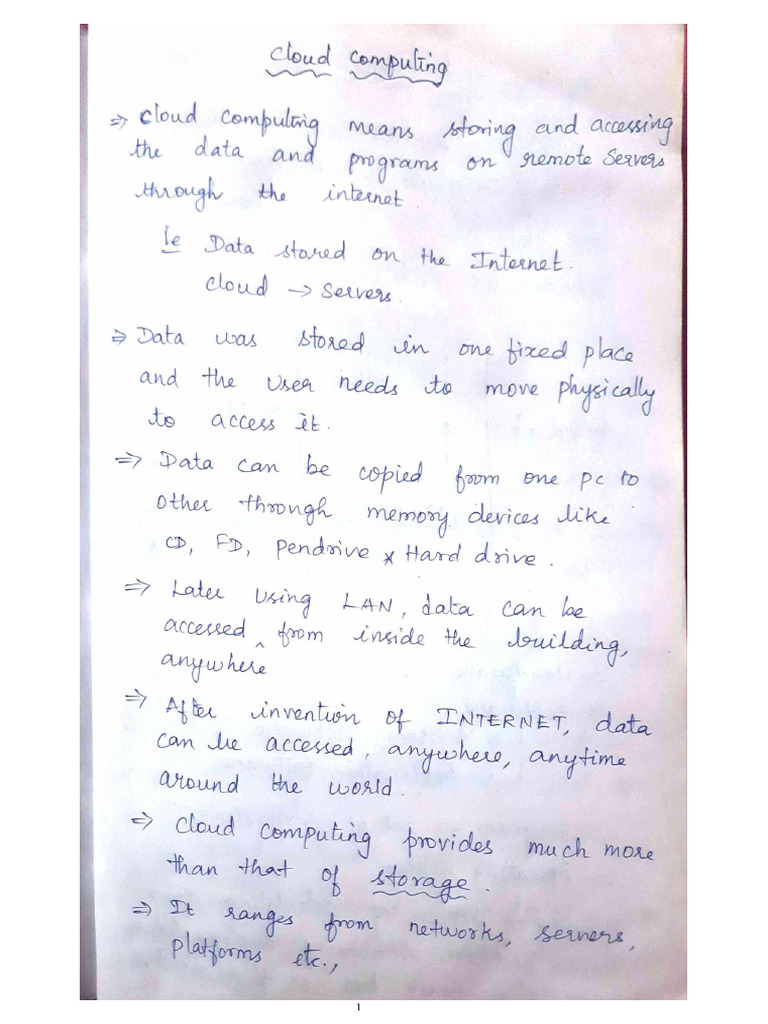 Cloud Computing
⇒ Cloud Computing means storing and accessing
the data and programs on remote Servers
through the internet
Ie Data stored on the Internet.
Cloud → Servers.
⇒ Data was stored in one fixed place
and the user needs to move physically
to access it.
⇒ Data can be copied from one pc to
other through memory devices like
CD, FD, Pendrive * Hard drive.
⇒ Later using LAN, data can be
accessed ^ from inside the building,
anywhere
⇒ After invention of INTERNET, data
can be accessed, anywhere, anytime
around the world.
⇒ Cloud computing provides much more
than that of storage.
⇒ It ranges from networks, servers,
platforms etc.,
1